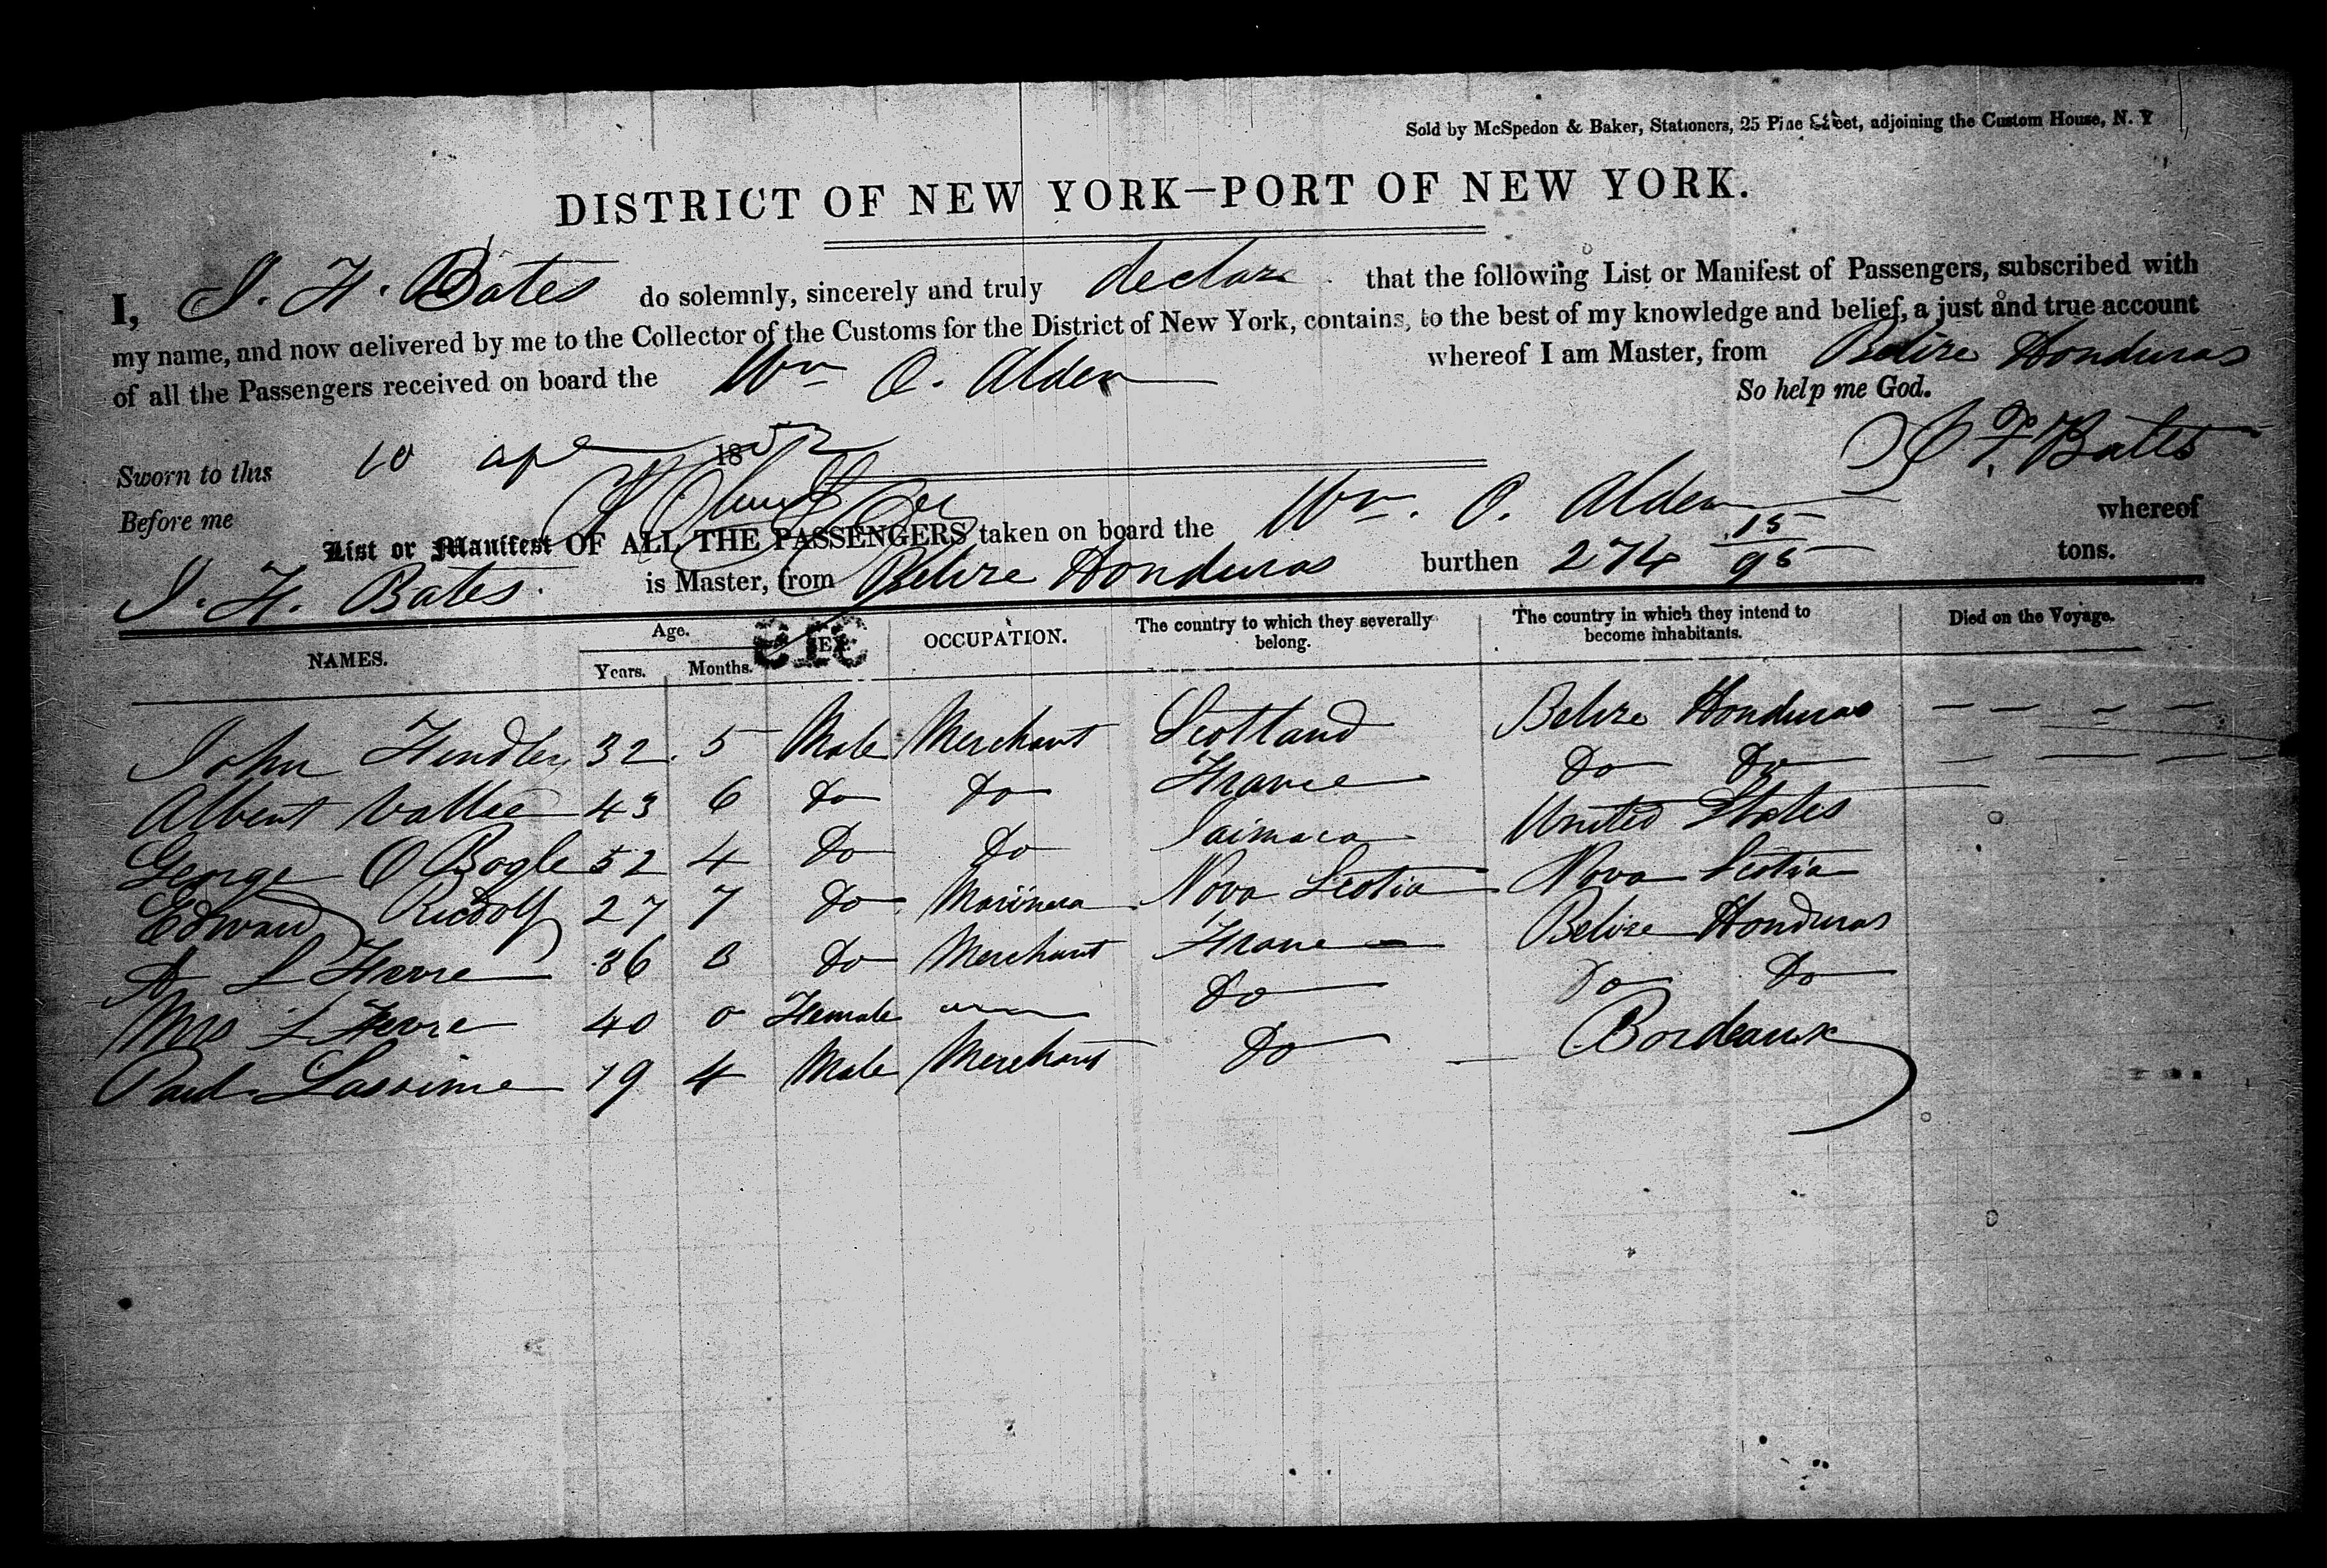 Sold by McSpedon & Baker, Stationers, 25 Pine Street, adjoining the Custom House, N. Y
DISTRICT OF NEW YORK—PORT OF NEW YORK.
I, I. H. Bates do solemnly, sincerely and truly declare that the following List or Manifest of Passengers, subscribed with
my name, and now delivered by me to the Collector of the Customs for the District of New York, contains, to the best of my knowledge and belief, a just and true account
of all the Passengers received on board the Wm O. Alden whereof I am Master, from Belize Honduras
So help me God.
Sworn to this 10 apl 1852 Bates
Before me
List or Manifest OF ALL THE PASSENGERS taken on board the Wm. O. Alden whereof
I. H. Bates. is Master, from Belize Honduras burthen 274 15/95 tons.
NAMES. Age. Years. Months. SEX. OCCUPATION. The country to which they severally belong. The country in which they intend to become inhabitants. Died on the Voyage.
John Hindley 32 5 Male Merchant Scotland Belize Honduras — — — —
Albert Vallee 43 6 Do Do France Do Do — — — —
George O Bogle 52 4 Do Do Jaimaca United States
Edward Rudolf 27 7 Do Marinera Nova Scotia Nova Scotia
A L Fevre 36 8 Do Merchant France Belize Honduras
Mrs L Fevre 40 0 Female Do Do Do
Paul Lassime 19 4 Male Merchant Do — Bordeaux